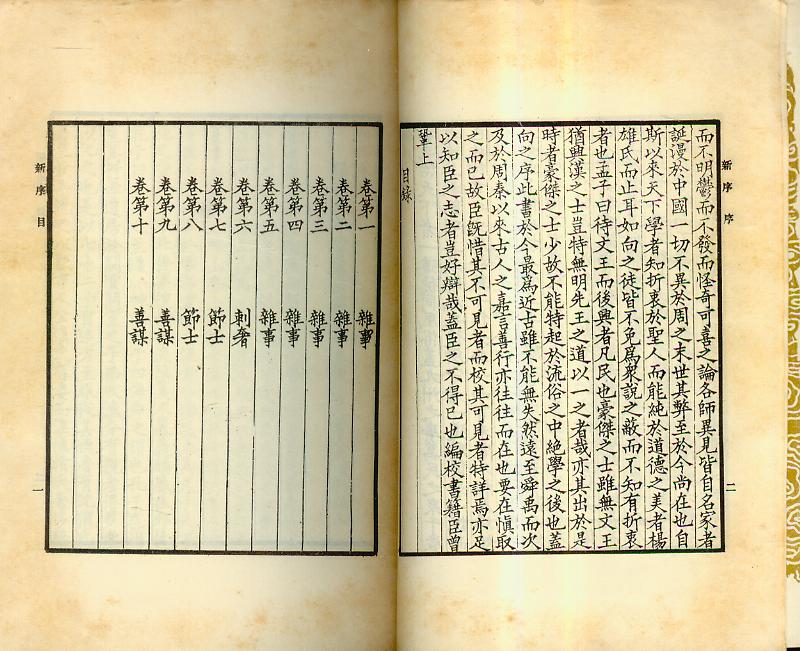 新序 序 二
而不明鬱而不發而怪奇可喜之論各師異見皆自名家者
誕漫於中國一切不異於周之末世其弊至於今尚在也自
斯以來天下學者知折衷於聖人而能純於道德之美者楊
雄氏而止耳如向之徒皆不免爲衆說之蔽而不知有折衷
者也孟子曰待文王而後興者凡民也豪傑之士雖無文王
猶興漢之士豈特無明先王之道以一之者哉亦其出於是
時者豪傑之士少故不能特起於流俗之中絕學之後也蓋
向之序此書於今最爲近古雖不能無失然遠至舜禹而次
及於周秦以來古人之嘉言善行亦往往而在也要在慎取
之而已故臣旣惜其不可見者而校其可見者特詳焉亦足
以知臣之志者豈好辯哉蓋臣之不得已也編校書籍臣曾
鞏上
目錄
卷第一 雜事
卷第二 雜事
卷第三 雜事
卷第四 雜事
卷第五 雜事
卷第六 刺奢
卷第七 節士
卷第八 節士
卷第九 善謀
卷第十 善謀
新序 目 一